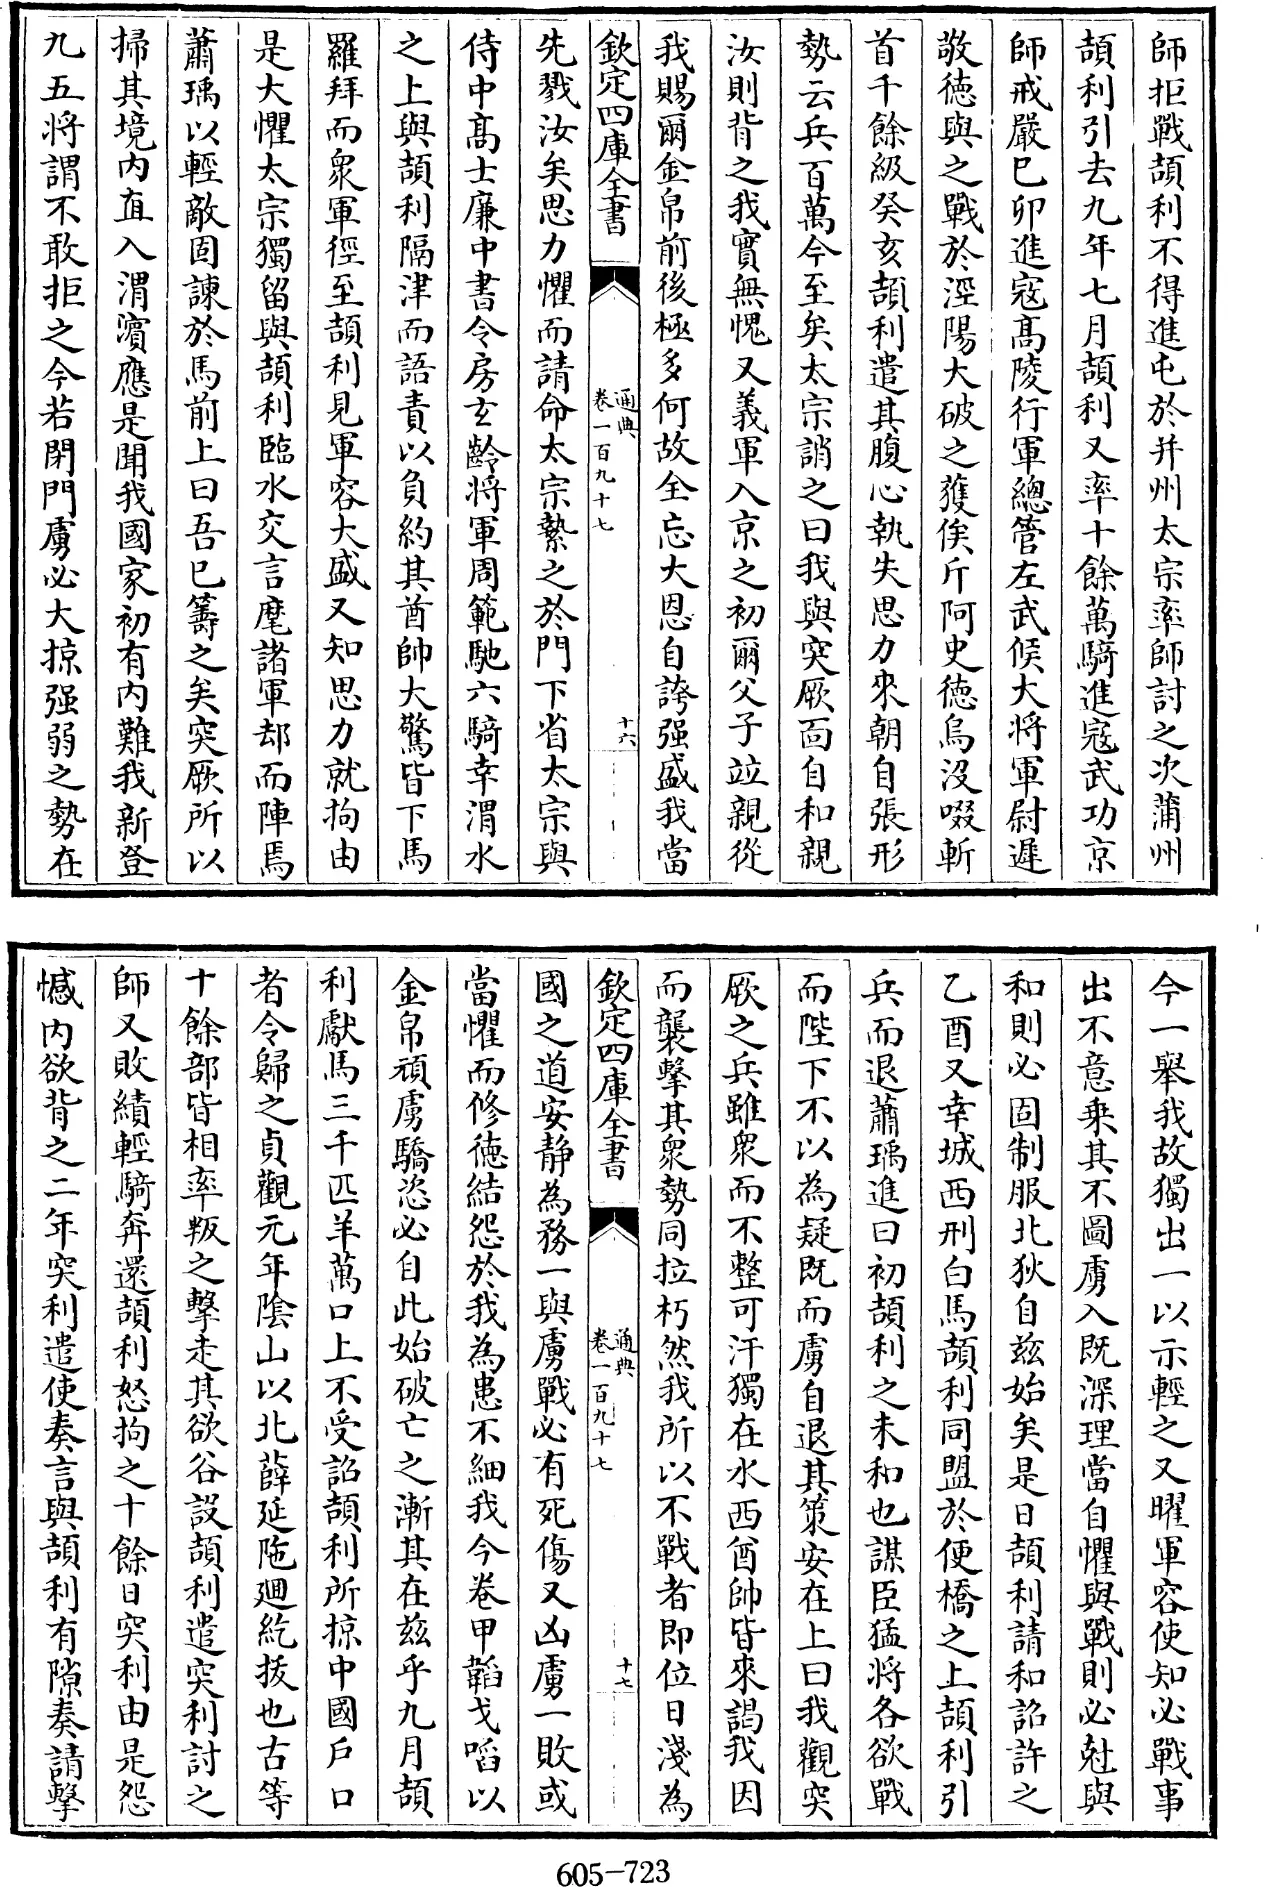 師拒戰頡利不得進屯於并州太宗率師討之次蒲州
頡利引去九年七月頡利又率十餘萬騎進冦武功京
師戒嚴巳卯進冦髙陵行軍總管左武候大将軍尉遲
敬徳與之戰於涇陽大破之獲俟斤阿史徳烏沒啜斬
首千餘級癸亥頡利遣其腹心執失思力來朝自張形
勢云兵百萬今至矣太宗誚之曰我與突厥面自和親
汝則背之我實無愧又義軍入京之初爾父子竝親從
我賜爾金帛前後極多何故全忘大恩自誇强盛我當
欽定四庫全書
通典
卷一百九十七
十六
先戮汝矣思力懼而請命太宗縶之於門下省太宗與
侍中髙士廉中書令房玄齡将軍周範馳六騎幸渭水
之上與頡利隔津而語責以負約其酋帥大驚皆下馬
羅拜而衆軍徑至頡利見軍容大盛又知思力就拘由
是大懼太宗獨留與頡利臨水交言麾諸軍却而陣焉
蕭瑀以輕敵固諫於馬前上曰吾已籌之矣突厥所以
掃其境内直入渭濵應是聞我國家初有内難我新登
九五将謂不敢拒之今若閉門虜必大掠强弱之勢在
今一舉我故獨出一以示輕之又曜軍容使知必戰事
出不意乗其不圖虜入既深理當自懼與戰則必尅與
和則必固制服北狄自兹始矣是日頡利請和詔許之
乙酉又幸城西刑白馬頡利同盟於便橋之上頡利引
兵而退蕭瑀進曰初頡利之未和也謀臣猛将各欲戰
而陛下不以為疑既而虜自退其策安在上曰我觀突
厥之兵雖衆而不整可汗獨在水西酋帥皆來謁我因
而襲擊其衆勢同拉朽然我所以不戰者即位日淺為
欽定四庫全書
通典
卷一百九十七
十七
國之道安静為務一與虜戰必有死傷又凶虜一敗或
當懼而修徳結怨於我為患不細我今卷甲韜戈啗以
金帛頑虜驕恣必自此始破亡之漸其在兹乎九月頡
利獻馬三千匹羊萬口上不受詔頡利所掠中國戶口
者令歸之貞觀元年隂山以北薛延陁廽紇拔也古等
十餘部皆相率叛之擊走其欲谷設頡利遣突利討之
師又敗績輕騎奔還頡利怒拘之十餘日突利由是怨
憾内欲背之二年突利遣使奏言與頡利有隙奏請擊
605-723